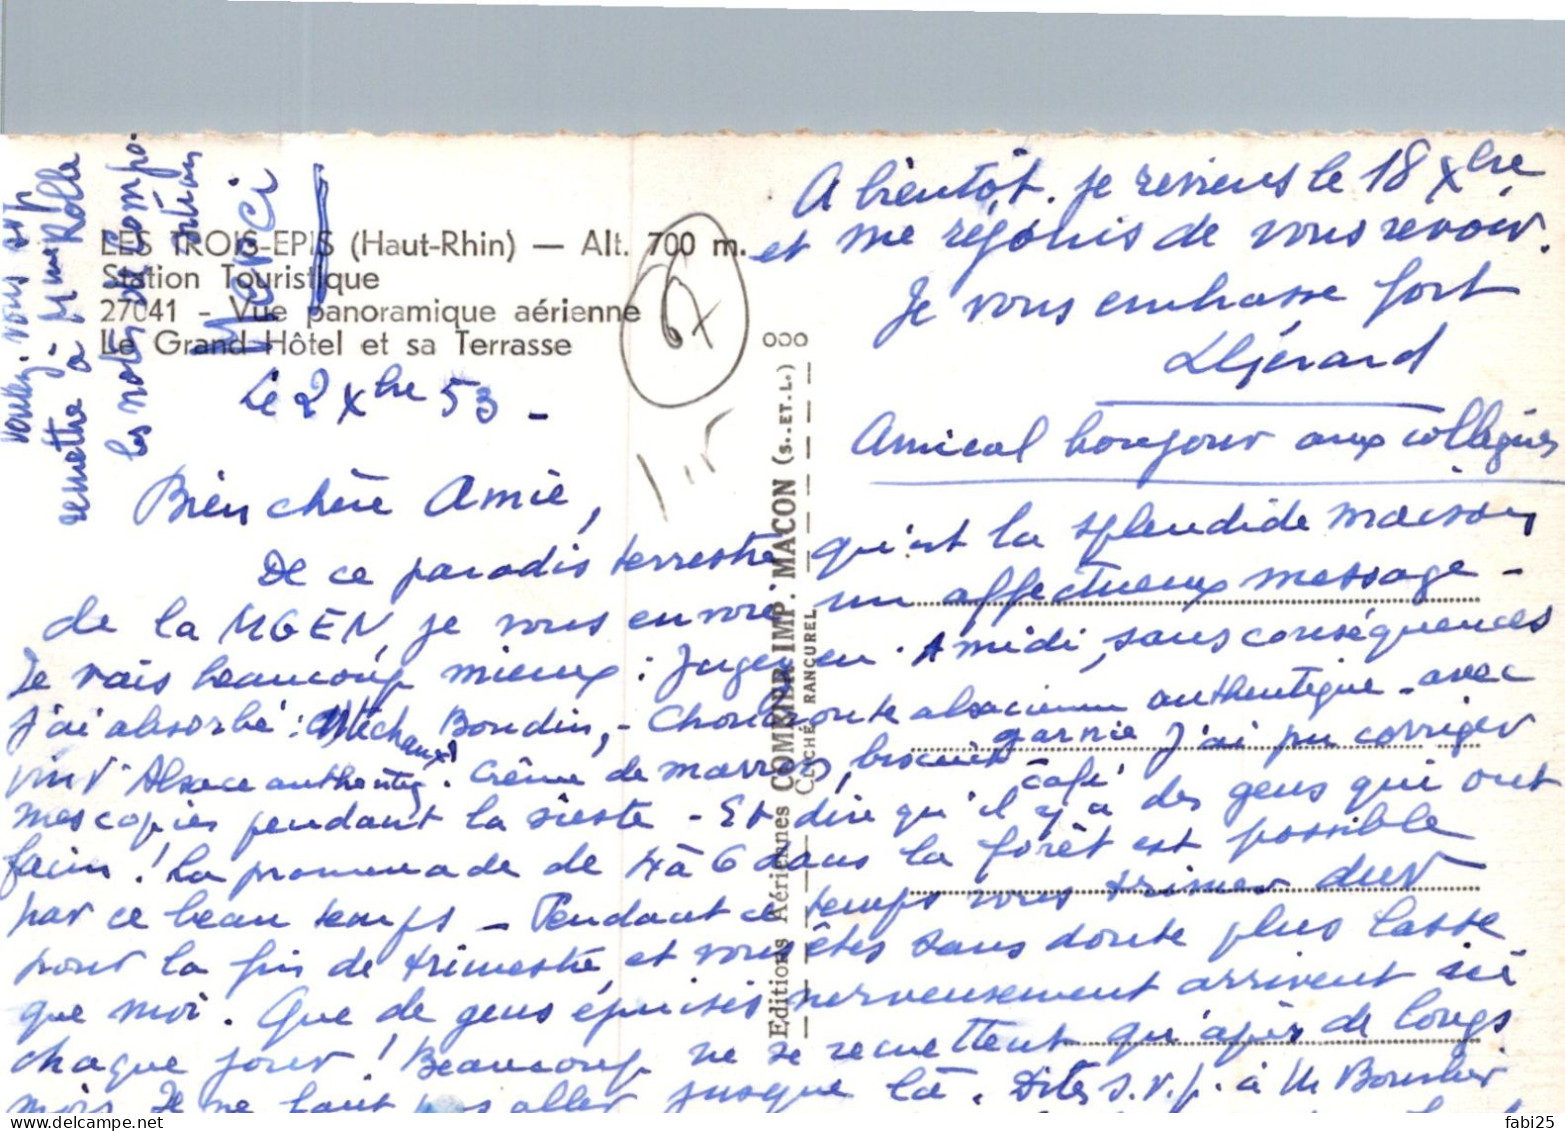 LES TROIS-EPIS (Haut-Rhin) — Alt. 700 m.
Station Touristique
27041 - Vue panoramique aérienne
Le Grand Hôtel et sa Terrasse
ooo
6x
Le 2 Xbre 53 -
Bien chère Amie,
De ce paradis terrestre qu'est la splendide maison
de la MGEN, je vous envoie un affectueux message -
Je vais beaucoup mieux : Jugez en. A midi, sans conséquences
j'ai absorbé : Boudin, - Choucroute alsacienne authentique - avec
garnie
vin d'Alsace authentiq. Crème de marrons, biscuit J'ai pu corriger
café
mes copies pendant la sieste - Et dire qu'il y a des gens qui ont
faim ! La promenade de 4 à 6 dans la forêt est possible
par ce beau temps - Pendant ce temps vous trimez dur
pour la fin de trimestre, et vous êtes sans doute plus lasse
que moi. Que de gens épuisés nerveusement arrivent ici
chaque jour ! Beaucoup ne se remettent qu'après de longs
mois. Il ne faut pas aller jusque là. Dites s.v.p. à M
A bientôt. je reviens le 18 Xbre
et me réjouis de vous revoir.
Je vous embrasse fort
LGérard
Amical bonjour aux collègues
remettre à Mme Rolle
les notes de compo-
sition
Merci
Editions Aériennes COMBIER IMP. MACON (S..ET.L.)
CLICHÉ RANCUREL
hipostcard.com
fabi25